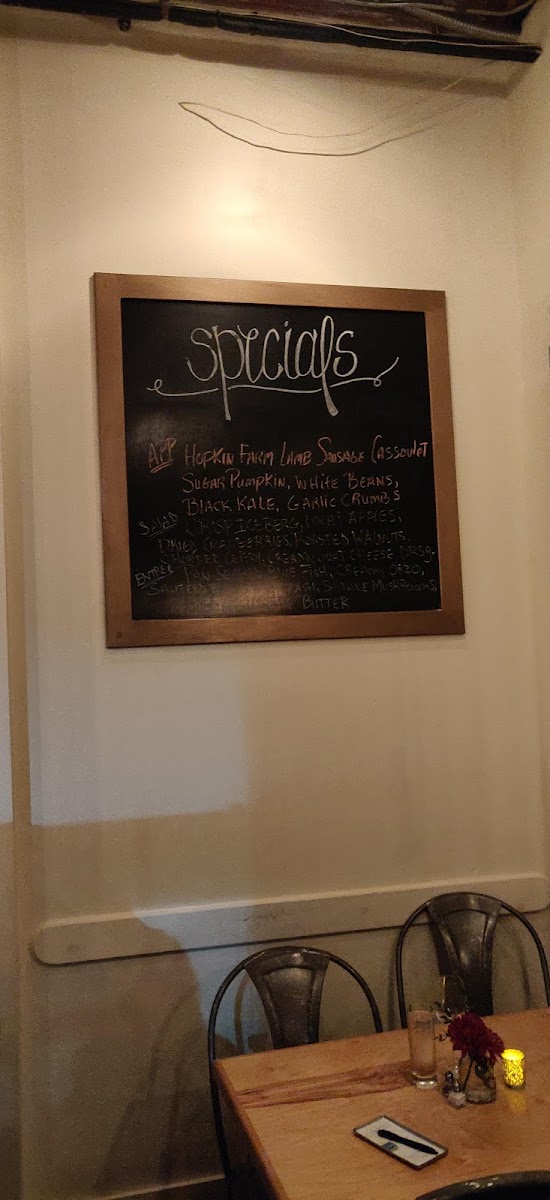 specials
APP HOPKIN FARM LAMB SAUSAGE CASSOULET
SUGAR PUMPKIN, WHITE BEANS,
BLACK KALE, GARLIC CRUMBS
SALAD CRISP ICEBERG, LOCAL APPLES,
DRIED CRANBERRIES, ROASTED WALNUTS,
CREAMY GOAT CHEESE DRSG.
ENTRÉE PAN FISH, CREAMY ORZO,
SAUTEED MUSHROOMS,
BUTTER